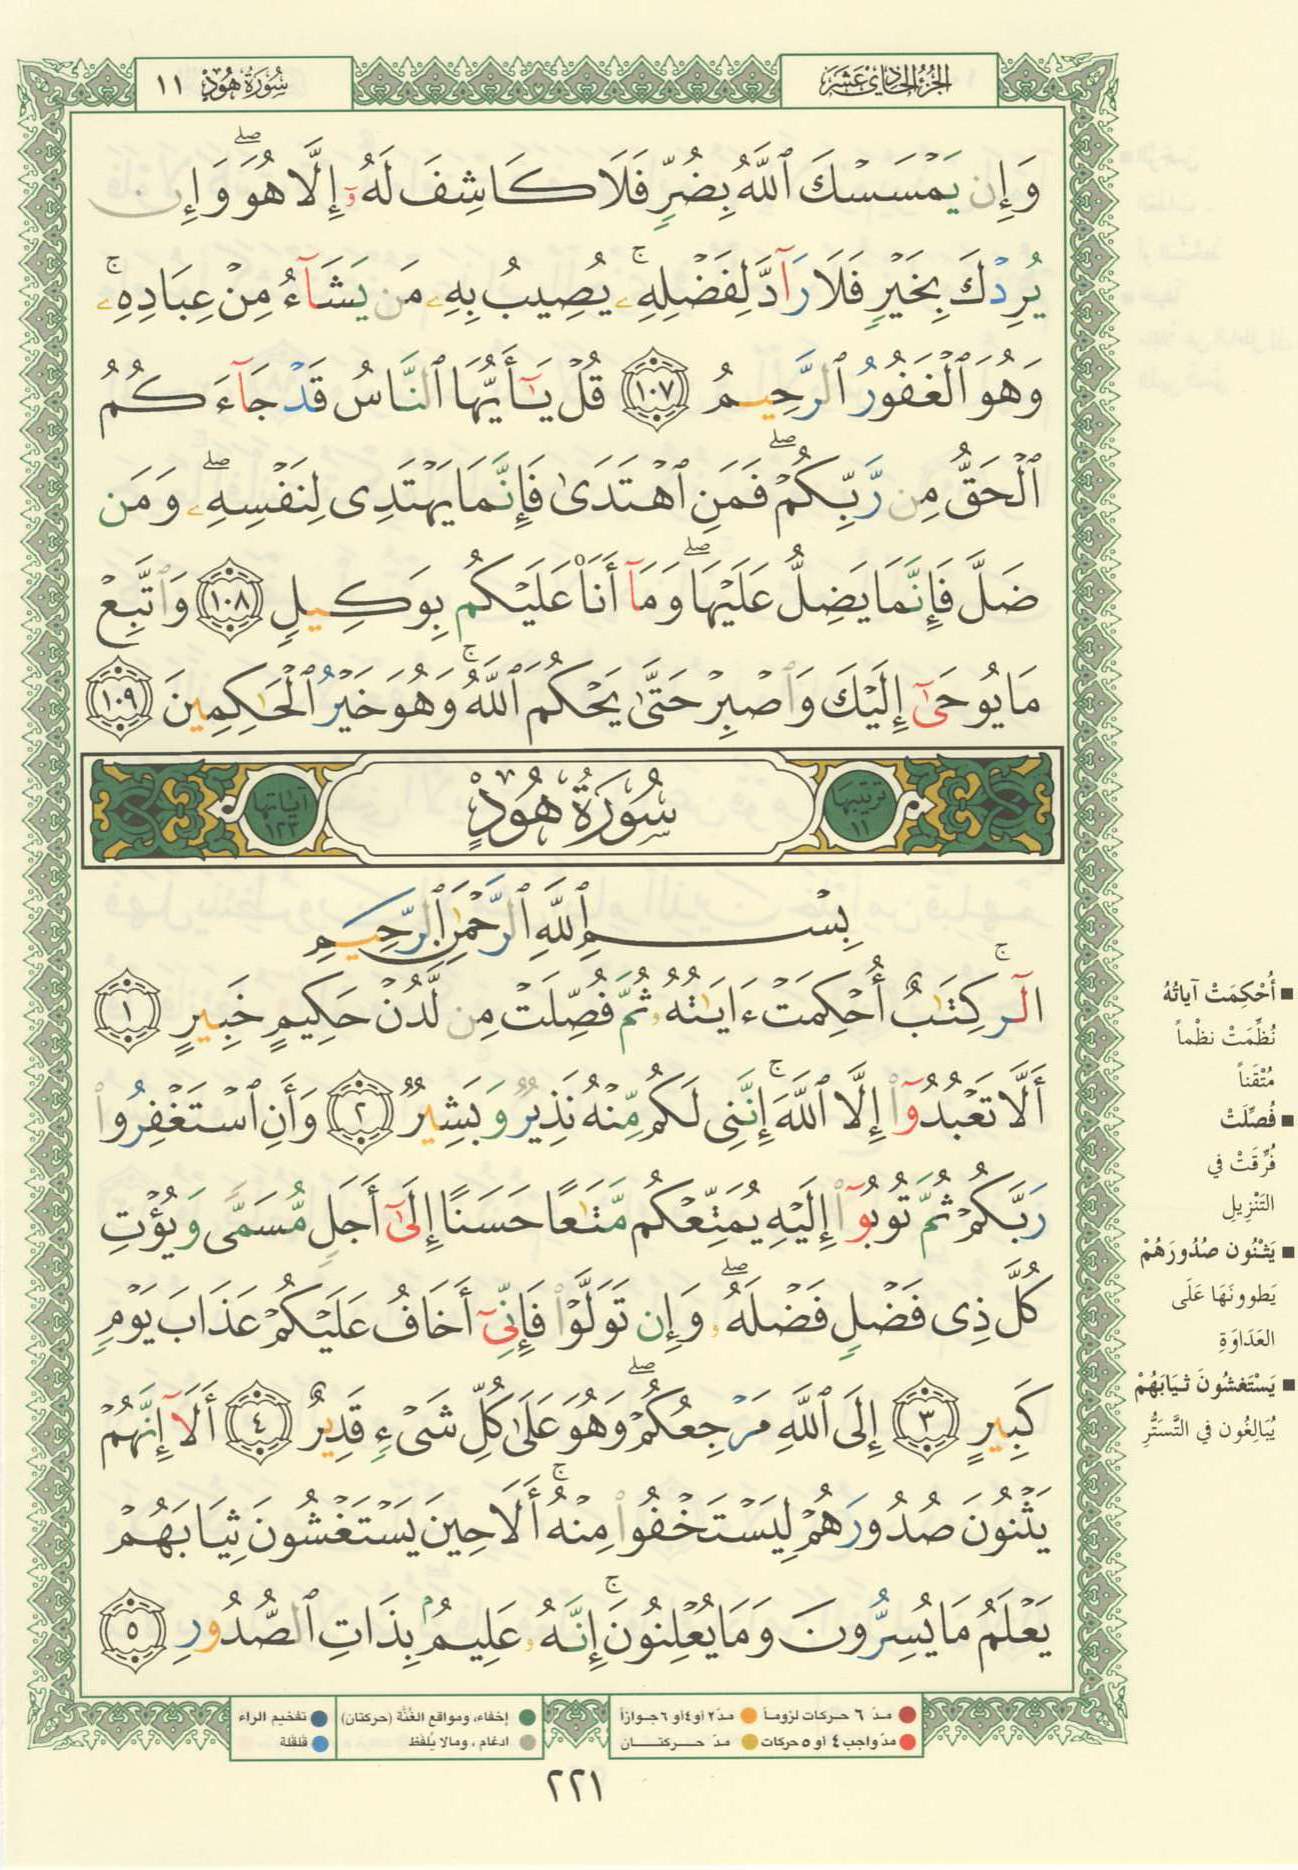 سُورَةُ هُودٍ ١١
الجُزْءُ الحَادِي عَشَرَ
وَإِن يَمْسَسْكَ ٱللَّهُ بِضُرٍّ فَلَا كَاشِفَ لَهُۥٓ إِلَّا هُوَۖ وَإِن
يُرِدْكَ بِخَيْرٍ فَلَا رَآدَّ لِفَضْلِهِۦۚ يُصِيبُ بِهِۦ مَن يَشَآءُ مِنْ عِبَادِهِۦۚ
وَهُوَ ٱلْغَفُورُ ٱلرَّحِيمُ ١٠٧ قُلْ يَـٰٓأَيُّهَا ٱلنَّاسُ قَدْ جَآءَكُمُ
ٱلْحَقُّ مِن رَّبِّكُمْۖ فَمَنِ ٱهْتَدَىٰ فَإِنَّمَا يَهْتَدِى لِنَفْسِهِۦۖ وَمَن
ضَلَّ فَإِنَّمَا يَضِلُّ عَلَيْهَاۖ وَمَآ أَنَا۠ عَلَيْكُم بِوَكِيلٍ ١٠٨ وَٱتَّبِعْ
مَا يُوحَىٰٓ إِلَيْكَ وَٱصْبِرْ حَتَّىٰ يَحْكُمَ ٱللَّهُۚ وَهُوَ خَيْرُ ٱلْحَـٰكِمِينَ ١٠٩
ترتيبها ١١
سُورَةُ هُودٍ
آياتها ١٢٣
بِسْمِ ٱللَّهِ ٱلرَّحْمَـٰنِ ٱلرَّحِيمِ
الٓرۚ كِتَـٰبٌ أُحْكِمَتْ ءَايَـٰتُهُۥ ثُمَّ فُصِّلَتْ مِن لَّدُنْ حَكِيمٍ خَبِيرٍ ١
أَلَّا تَعْبُدُوٓا۟ إِلَّا ٱللَّهَۚ إِنَّنِى لَكُم مِّنْهُ نَذِيرٌ وَبَشِيرٌ ٢ وَأَنِ ٱسْتَغْفِرُوا۟
رَبَّكُمْ ثُمَّ تُوبُوٓا۟ إِلَيْهِ يُمَتِّعْكُم مَّتَـٰعًا حَسَنًا إِلَىٰٓ أَجَلٍ مُّسَمًّى وَيُؤْتِ
كُلَّ ذِى فَضْلٍ فَضْلَهُۥۖ وَإِن تَوَلَّوْا۟ فَإِنِّىٓ أَخَافُ عَلَيْكُمْ عَذَابَ يَوْمٍ
كَبِيرٍ ٣ إِلَى ٱللَّهِ مَرْجِعُكُمْۖ وَهُوَ عَلَىٰ كُلِّ شَىْءٍ قَدِيرٌ ٤ أَلَآ إِنَّهُمْ
يَثْنُونَ صُدُورَهُمْ لِيَسْتَخْفُوا۟ مِنْهُۚ أَلَا حِينَ يَسْتَغْشُونَ ثِيَابَهُمْ
يَعْلَمُ مَا يُسِرُّونَ وَمَا يُعْلِنُونَۚ إِنَّهُۥ عَلِيمٌۢ بِذَاتِ ٱلصُّدُورِ ٥
■ أُحْكِمَتْ آياتُهُ
نُظِّمَتْ نظْماً
مُتْقَناً
■ فُصِّلَتْ
فُرِّقَتْ في
التَنْزِيلِ
■ يَثْنُون صُدُورَهُمْ
يَطوونَهَا عَلَى
العَدَاوَةِ
■ يَسْتَغشُونَ ثيَابَهُمْ
يُبَالِغُون في التَّسَتُّرِ
مدّ ٦ حركات لزوماً مدّ ٢ أو ٤ أو ٦ جوازاً
مدّ واجب ٤ أو ٥ حركات مدّ حركتان
إخفاء، ومواقع الغُنَّة (حركتان) تفخيم الراء
ادغام، ومالا يُلفَظ قلقلة
٢٢١